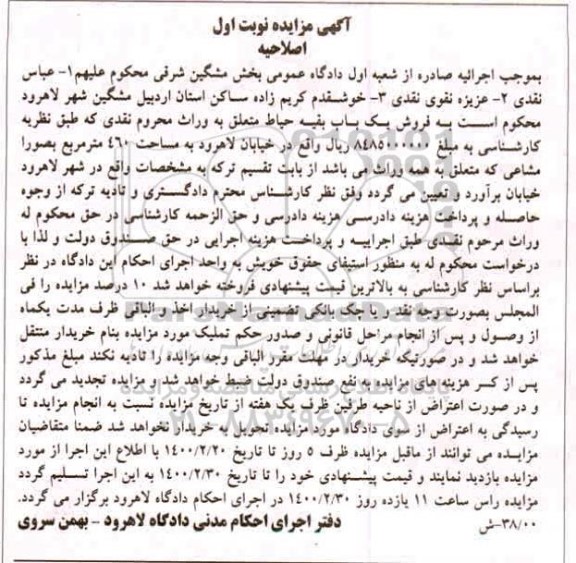 آگهی مزایده نوبت اول
اصلاحیه
بموجب اجرائیه صادره از شعبه اول دادگاه عمومی بخش مشگین شرقی محکوم علیهم۱- عباس
نقدی ۲- عزیزه نقوی نقدی ۳- خوشقدم کریم زاده ساکن استان اردبیل مشگین شهر لاهرود
محکوم است به فروش یک باب بقیه حیاط متعلق به وراث محروم نقدی که طبق نظریه
کارشناسی به مبلغ ۸۴۸۵۰۰۰۰۰۰ ریال واقع در خیابان لاهرود به مساحت ۴۶۰ مترمربع بصورا
مشاعی که متعلق به همه وراث می باشد از بابت تقسیم ترکه به مشخصات واقع در شهر لاهرود
خیابان برآورد و تعیین می گردد وفق نظر کارشناس محترم دادگستری و تادیه ترکه از وجوه
حاصله و پرداخت هزینه دادرسی هزینه دادرسی و حق الزحمه کارشناسی در حق محکوم له
وراث مرحوم نقدی طبق اجراییه و پرداخت هزینه اجرایی در حق صندوق دولت و لذا با
درخواست محکوم له به منظور استیفای حقوق خویش به واحد اجرای احکام این دادگاه در نظر
براساس نظر کارشناسی به بالاترین قیمت پیشنهادی فروخته خواهد شد ۱۰ درصد مزایده را فی
المجلس بصورت وجه نقد و یا چک بانکی تضمینی از خریدار اخذ و الباقی ظرف مدت یکماه
از وصول و پس از انجام مراحل قانونی و صدور حکم تملیک مورد مزایده بنام خریدار منتقل
خواهد شد و در صورتیکه خریدار در مهلت مقرر الباقی وجه مزایده را تادیه نکند مبلغ مذکور
پس از کسر هزینه های مزایده به نفع صندوق دولت ضبط خواهد شد و مزایده تجدید می گردد
و در صورت اعتراض از ناحیه طرفین ظرف یک هفته از تاریخ مزایده نسبت به انجام مزایده تا
رسیدگی به اعتراض از سوی دادگاه مورد مزایده تحویل به خریدار نخواهد شد ضمنا متقاضیان
مزایده می توانند از ماقبل مزایده ظرف ۵ روز تا تاریخ ۱۴۰۰/۲/۲۰ با اطلاع این اجرا از مورد
مزایده بازدید نمایند و قیمت پیشنهادی خود را تا تاریخ ۱۴۰۰/۲/۳۰ به این اجرا تسلیم گردد
مزایده راس ساعت ۱۱ یازده روز ۱۴۰۰/۲/۳۰ در اجرای احکام دادگاه لاهرود برگزار می گردد.
۳۸/۰۰-ش دفتر اجرای احکام مدنی دادگاه لاهرود - بهمن سروی
ParsNamadData
پایگاه اطلاع رسانی مناقصه و مزایده
۰۲۱-۸۸۳۴۹۶۷۰-۵